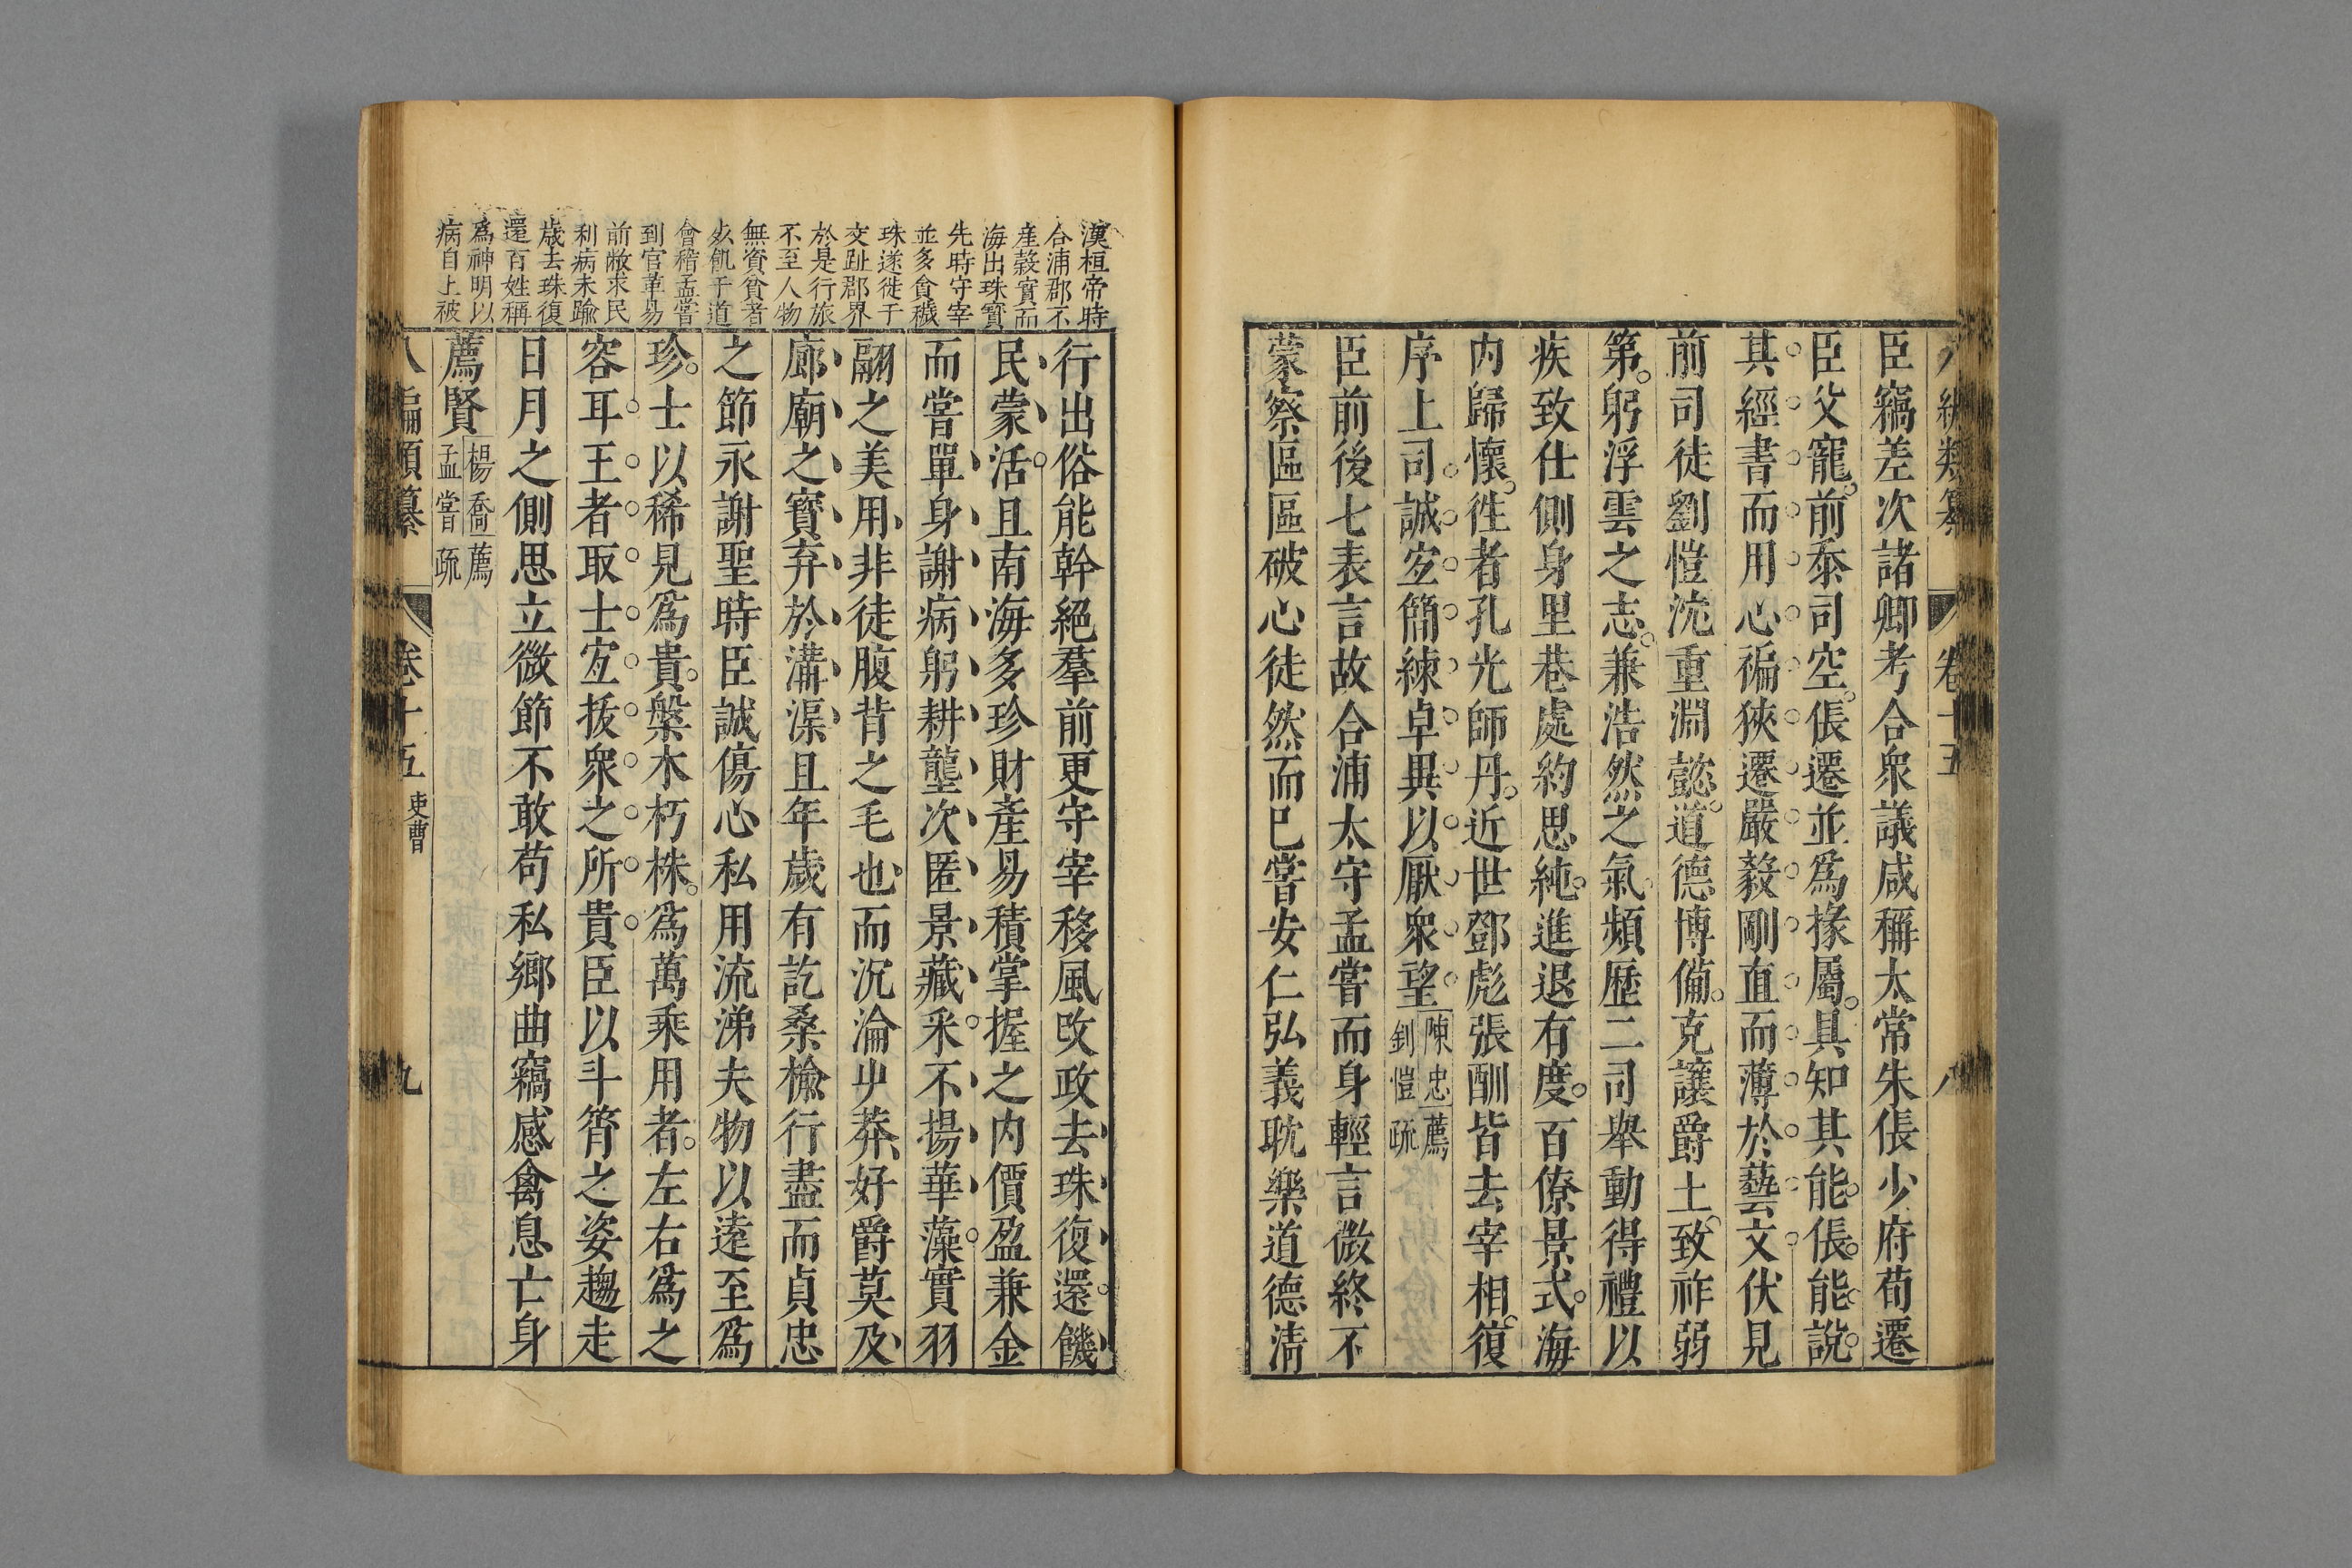 臣竊差次諸卿考合衆議咸稱太常朱倀少府荀遷
臣父寵前忝司空倀遷並爲掾屬具知其能倀能說
其經書而用心褊狹遷嚴毅剛直而薄於藝文伏見
前司徒劉愷沈重淵懿道德博備克讓爵土致祚弱
第躬浮雲之志兼浩然之氣頻歷二司舉動得禮以
疾致仕側身里巷處約思純進退有度百僚景式海
内歸懷徃者孔光師丹近世鄧彪張酺皆去宰相復
序上司誠宐簡練卓異以厭衆望陳忠薦劉愷疏
臣前後七表言故合浦太守孟嘗而身輕言微終不
蒙察區區破心徒然而巳嘗安仁弘義耽樂道德淸
卷十五
八
漢桓帝時
合浦郡不
產穀實而
海出珠寳
先時守宰
並多貪穢
珠遂徙于
交趾郡界
於是行旅
不至人物
無資貧者
死餓于道
會稽孟嘗
到官革易
前敝求民
利病未踰
歲去珠復
還百姓稱
爲神明以
病自上被
行出俗能幹絕羣前更守宰移風改政去珠復還饑
民蒙活且南海多珍財產易積掌握之内價盈兼金
而嘗單身謝病躬耕壟次匿景藏采不揚華藻實羽
翮之美用非徒腹背之毛也而沉淪屮莽好爵莫及
廊廟之寳弃於溝渠且年歲有訖桑榆行盡而貞忠
之節永謝聖時臣誠傷心私用流涕夫物以逺至爲
珍士以稀見爲貴槃木朽株爲萬乘用者左右爲之
容耳王者取士宐拔衆之所貴臣以斗筲之姿趨走
日月之側思立微節不敢苟私鄉曲竊感禽息亡身
薦賢楊喬薦孟嘗疏
八編類纂 卷十五 吏曹 九